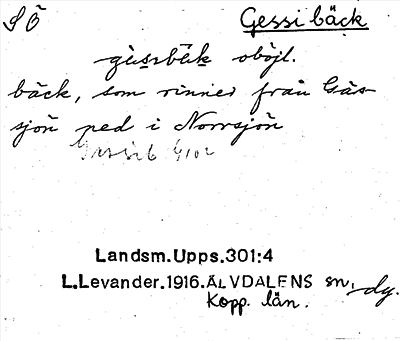 SÖ
Gessi bäck
gèssɩbɛ̀k oböjl.
bäck, som rinner från Gäs-
sjön ned i Norrsjön
Landsm.Upps.301:4
L.Levander.1916.ÄLVDALENS sn, dy.
Kopp. län.